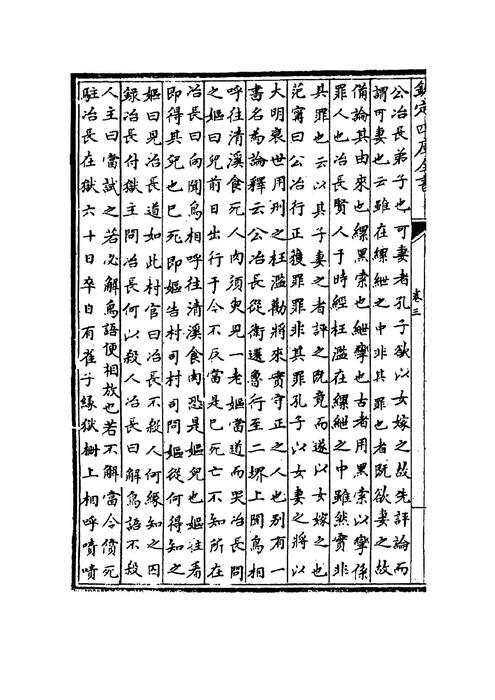 欽定四庫全書
卷三
公冶長弟子也可妻者孔子欲以女嫁之故先評論而
謂可妻也云雖在縲絏之中非其罪也者既欲妻之故
備論其由來也縲黑索也絏攣也古者用黑索以攣係
罪人也冶長賢人于時經枉濫在縲絏之中雖然實非
其罪也云以其子妻之者評之既竟而遂以女嫁之也
范甯曰公冶行正獲罪罪非其罪孔子以女妻之將以
大明衰世用刑之枉濫勸將來實守正之人也別有一
書名為論釋云公冶長從衛還魯行至二堺上聞鳥相
呼往清溪食死人肉須臾見一老嫗當道而哭冶長問
之嫗曰兒前日出行于今不反當是已死亡不知所在
冶長曰向聞鳥相呼往清溪食肉恐是嫗兒也嫗往看
即得其兒也已死即嫗告村司村司問嫗從何得知之
嫗曰見冶長道如此村官曰冶長不殺人何緣知之囚
録冶長付獄主問冶長何以殺人冶長曰解鳥語不殺
人主曰當試之若必解鳥語便相放也若不解當令償死
駐冶長在獄六十日卒日有雀子緣獄栅上相呼嘖嘖